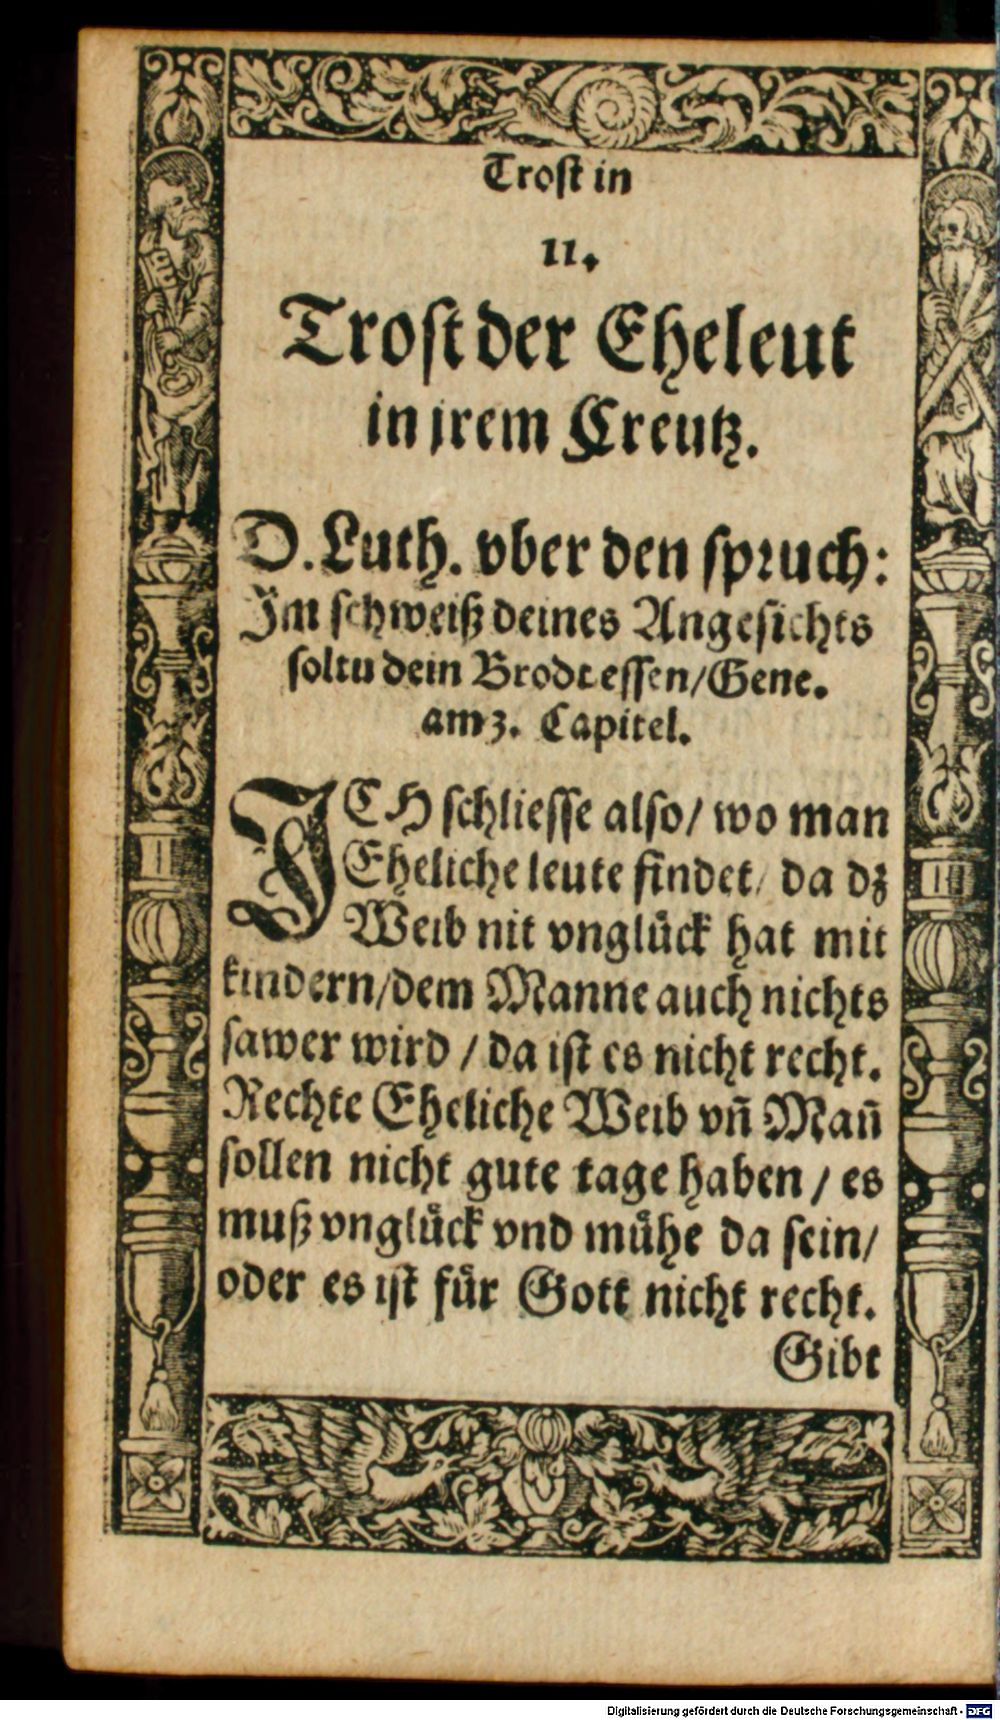 Trost in
11.
Trost der Eheleut
in jrem Creutz.
D. Luth. vber den spruch:
Im schweiß deines Angesichts
soltu dein Brodt essen/Gene.
am 3. Capitel.
ICH schliesse also/ wo man
Eheliche leute findet/ da dz
Weib nit vnglück hat mit
kindern/dem Manne auch nichts
sawer wird / da ist es nicht recht.
Rechte Eheliche Weib vñ Mañ
sollen nicht gute tage haben / es
muß vnglück vnd mühe da sein/
oder es ist für Gott nicht recht.
Gibt
Digitalisierung gefördert durch die Deutsche Forschungsgemeinschaft - DFG